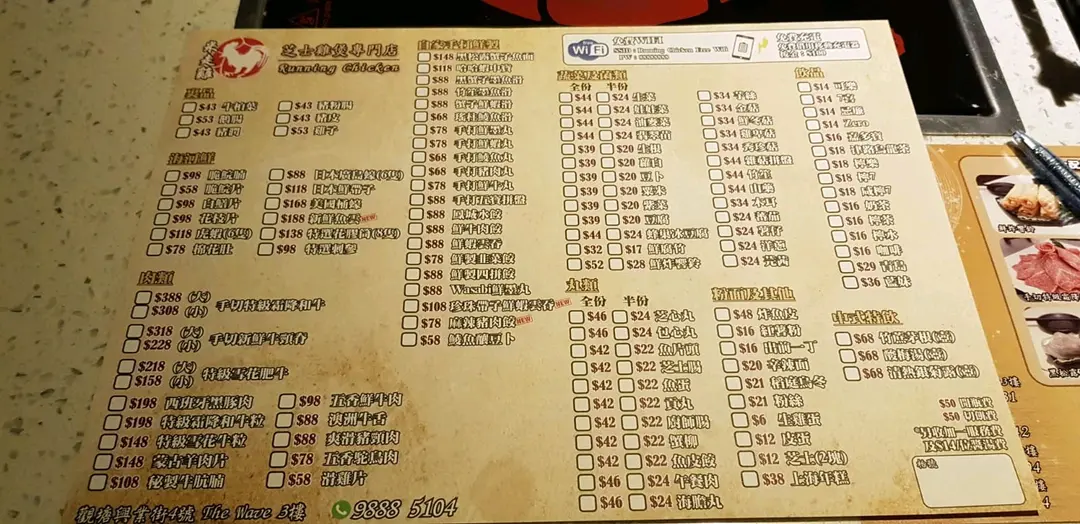 芝士雞煲專門店
Running Chicken
免費WiFi
WiFi
SSID : Running Chicken Free Wifi
PW : 88888888
免費充電
海河鮮
$98 脆鯇腩
$58 脆鯇片
$98 白鱔片
$98 花枝片
$118 虎蝦(6隻)
$78 棉花肚
$88 日本廣島蠔(6隻)
$118 日本鮮帶子
$168 美國桶蠔
$188 新鮮魚雲 NEW
$138 特選花膠筒(8隻)
$98 特選刺參
$43 牛柏葉
$53 鵝腸
$43 豬潤
$43 豬粉腸
$43 豬皮
$53 雞子
肉類
$388 (大)
$308 (小) 手切特級霜降和牛
$318 (大)
$228 (小) 手切新鮮牛頸脊
$218 (大)
$158 (小) 特級雪花肥牛
$198 西班牙黑豚肉
$198 特級霜降和牛粒
$148 特級雪花牛粒
$148 蒙古羊肉片
$108 秘製牛𩩍腩
$98 五香鮮牛肉
$88 澳洲牛舌
$88 爽滑豬頸肉
$78 五香鴕鳥肉
$58 滑雞片
自家手打鮮製
$148 黑松露蟹子魚面
$88 黑蟹子墨魚滑
$88 竹笙墨魚滑
$88 蟹子鮮蝦滑
$68 瑤柱鯪魚滑
$78 手打鮮墨丸
$78 手打鮮蝦丸
$68 手打鯪魚丸
$68 手打豬肉丸
$78 手打鮮牛丸
$88 手打五寶拼盤
$88 鳳城水餃
$88 鮮牛肉餃
$88 鮮蝦雲吞
$78 鮮製韮菜餃
$88 鮮製四拼餃
$88 Wasabi鮮墨丸
$108 珍珠帶子鮮蝦雲吞 NEW
$78 麻辣豬肉餃 NEW
$58 鯪魚釀豆卜
蔬菜及菌類
全份 半份
$44 $24 生菜
$44 $24 娃娃菜
$44 $24 油麥菜
$44 $24 翡翠苗
$39 $20 生根
$39 $20 蘿白
$39 $20 豆卜
$39 $20 粟米
$39 $20 紫菜
$39 $20 豆腐
$44 $24 蜂巢冰豆腐
$32 $17 鮮腐竹
$52 $28 鮮炸響鈴
$34 芋絲
$34 金菇
$44 鮮冬菇
$44 雞脾菇
$34 秀珍菇
$44 雜菇拼盤
$44 竹笙
$44 山藥
$34 木耳
$24 蕃茄
$24 薯仔
$24 洋蔥
$24 茼蒿
丸類
全份 半份
$46 $24 芝心丸
$46 $24 包心丸
$42 $22 魚片頭
$42 $22 芝士腸
$42 $22 魚蛋
$42 $22 貢丸
$42 $22 廚師腸
$42 $22 蟹柳
$42 $22 魚皮餃
$46 $24 午餐肉
$46 $24 海膽丸
粉面及其他
$48 炸魚皮
$16 紅薯粉
$16 出前一丁
$20 辛辣面
$21 稻庭烏冬
$21 粉絲
$6 生雞蛋
$12 皮蛋
$12 芝士(2塊)
$38 上海年糕
飲品
$14 可樂
$14 忌廉
$14 Zero
$18 檸樂
$18 檸7
$18 咸檸7
$16 奶茶
$16 檸茶
$16 檸水
$16 咖啡
$29 青島
$36 藍妹
中式特飲
$68 竹蔗茅根(壺)
$68 酸梅湯(壺)
$50 開瓶費
$50 切餅費
觀塘興業街4號 The Wave 3樓 9888 5104